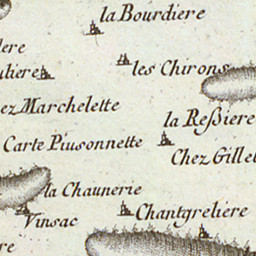 la Bourdiere
lere
uliere
les Chirons
ez Marchelette
la Reßiere
Carte Piusonnette
Chez Gillet
la Chaunerie
Vinsac
Chantgreliere
re